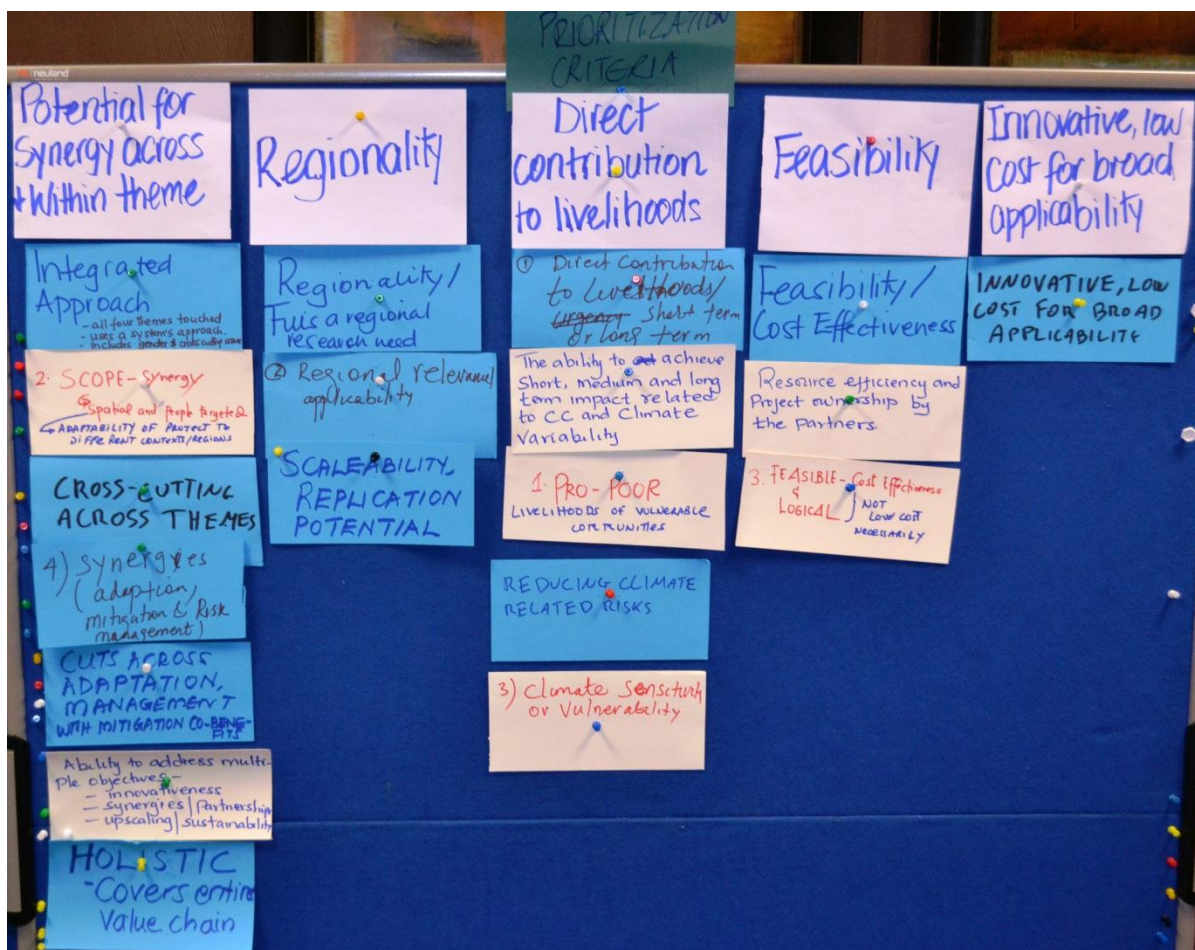 neuland
PRIORITIZATION
CRITERIA
Potential for
Synergy across
+ Within theme
Integrated
Approach
- all four themes touched
- uses a system's approach.
- includes gender & cross cutting issues
2. SCOPE - Synergy
Spatial and people targeted
ADAPTABILITY OF PROJECT TO
DIFFERENT CONTEXTS/REGIONS
CROSS-CUTTING
ACROSS THEMES
4) Synergies
(adaption,
mitigation & Risk
management)
CUTS ACROSS
ADAPTATION,
MANAGEMENT
WITH MITIGATION CO-BENE-
FITS
Ability to address multi-
ple objectives-
- innovativeness
- synergies/Partnership
- upscaling/sustainability
HOLISTIC
-Covers entire
Value chain
Regionality
Regionality/
a regional
research need
② Regional relevance/
applicability
SCALEABILITY,
REPLICATION
POTENTIAL
Direct
contribution
to livelihoods
① Direct Contribution
to Livelihoods/
urgency short term
or long term
The ability to achieve
Short, medium and long
term impact related
to CC and Climate
Variability
1. PRO-POOR
LIVELIHOODS OF VULNERABLE
COMMUNITIES
REDUCING CLIMATE
RELATED RISKS
3) Climate
or Vulnerability
Feasibility
Feasibility/
Cost Effectiveness
Resource efficiency and
Project ownership by
the partners.
3. FEASIBLE - Cost Effectiveness
& NOT
LOGICAL LOW COST
NECESSARILY
Innovative, low
cost for broad
applicability
INNOVATIVE, LOW
COST FOR BROAD
APPLICABILITY